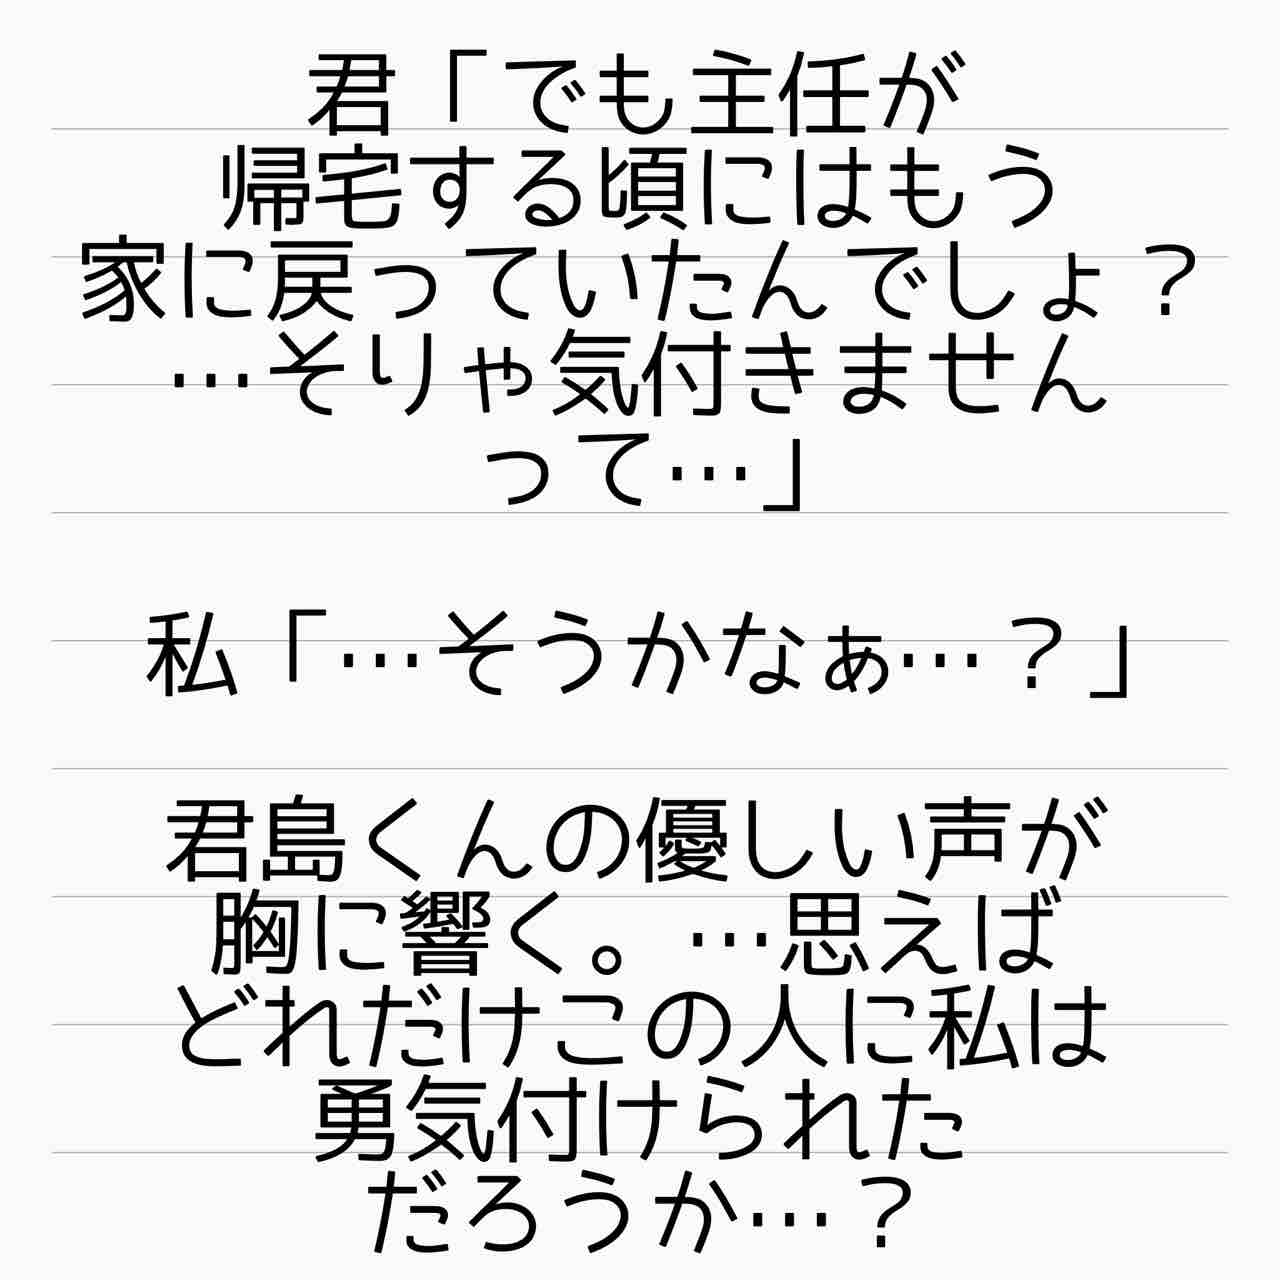 君「でも主任が
帰宅する頃にはもう
家に戻っていたんでしょ？
…そりゃ気付きません
って…」
私「…そうかなぁ…？」
君島くんの優しい声が
胸に響く。…思えば
どれだけこの人に私は
勇気付けられた
だろうか…？